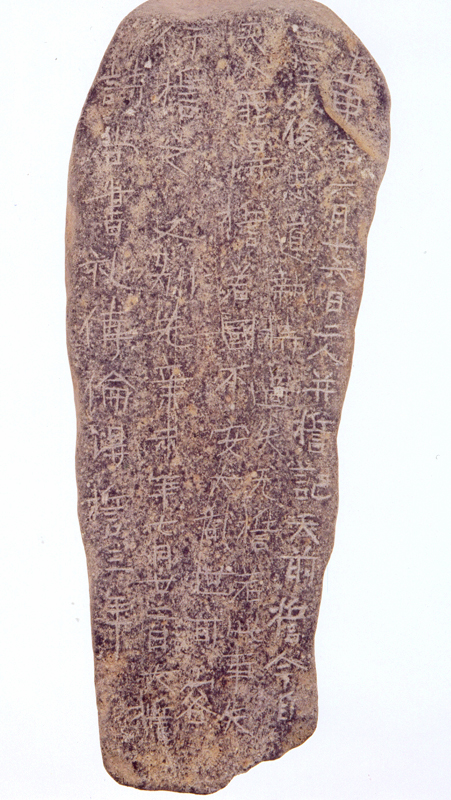 壬申年六月十六日二人幷誓記天前誓今自
三年以後忠道執持過失无誓若此事失
天大罪得誓若國不安大乱世可容
行誓之又別先辛末年七月廿二日大誓
詩尙書礼傳倫得誓三年